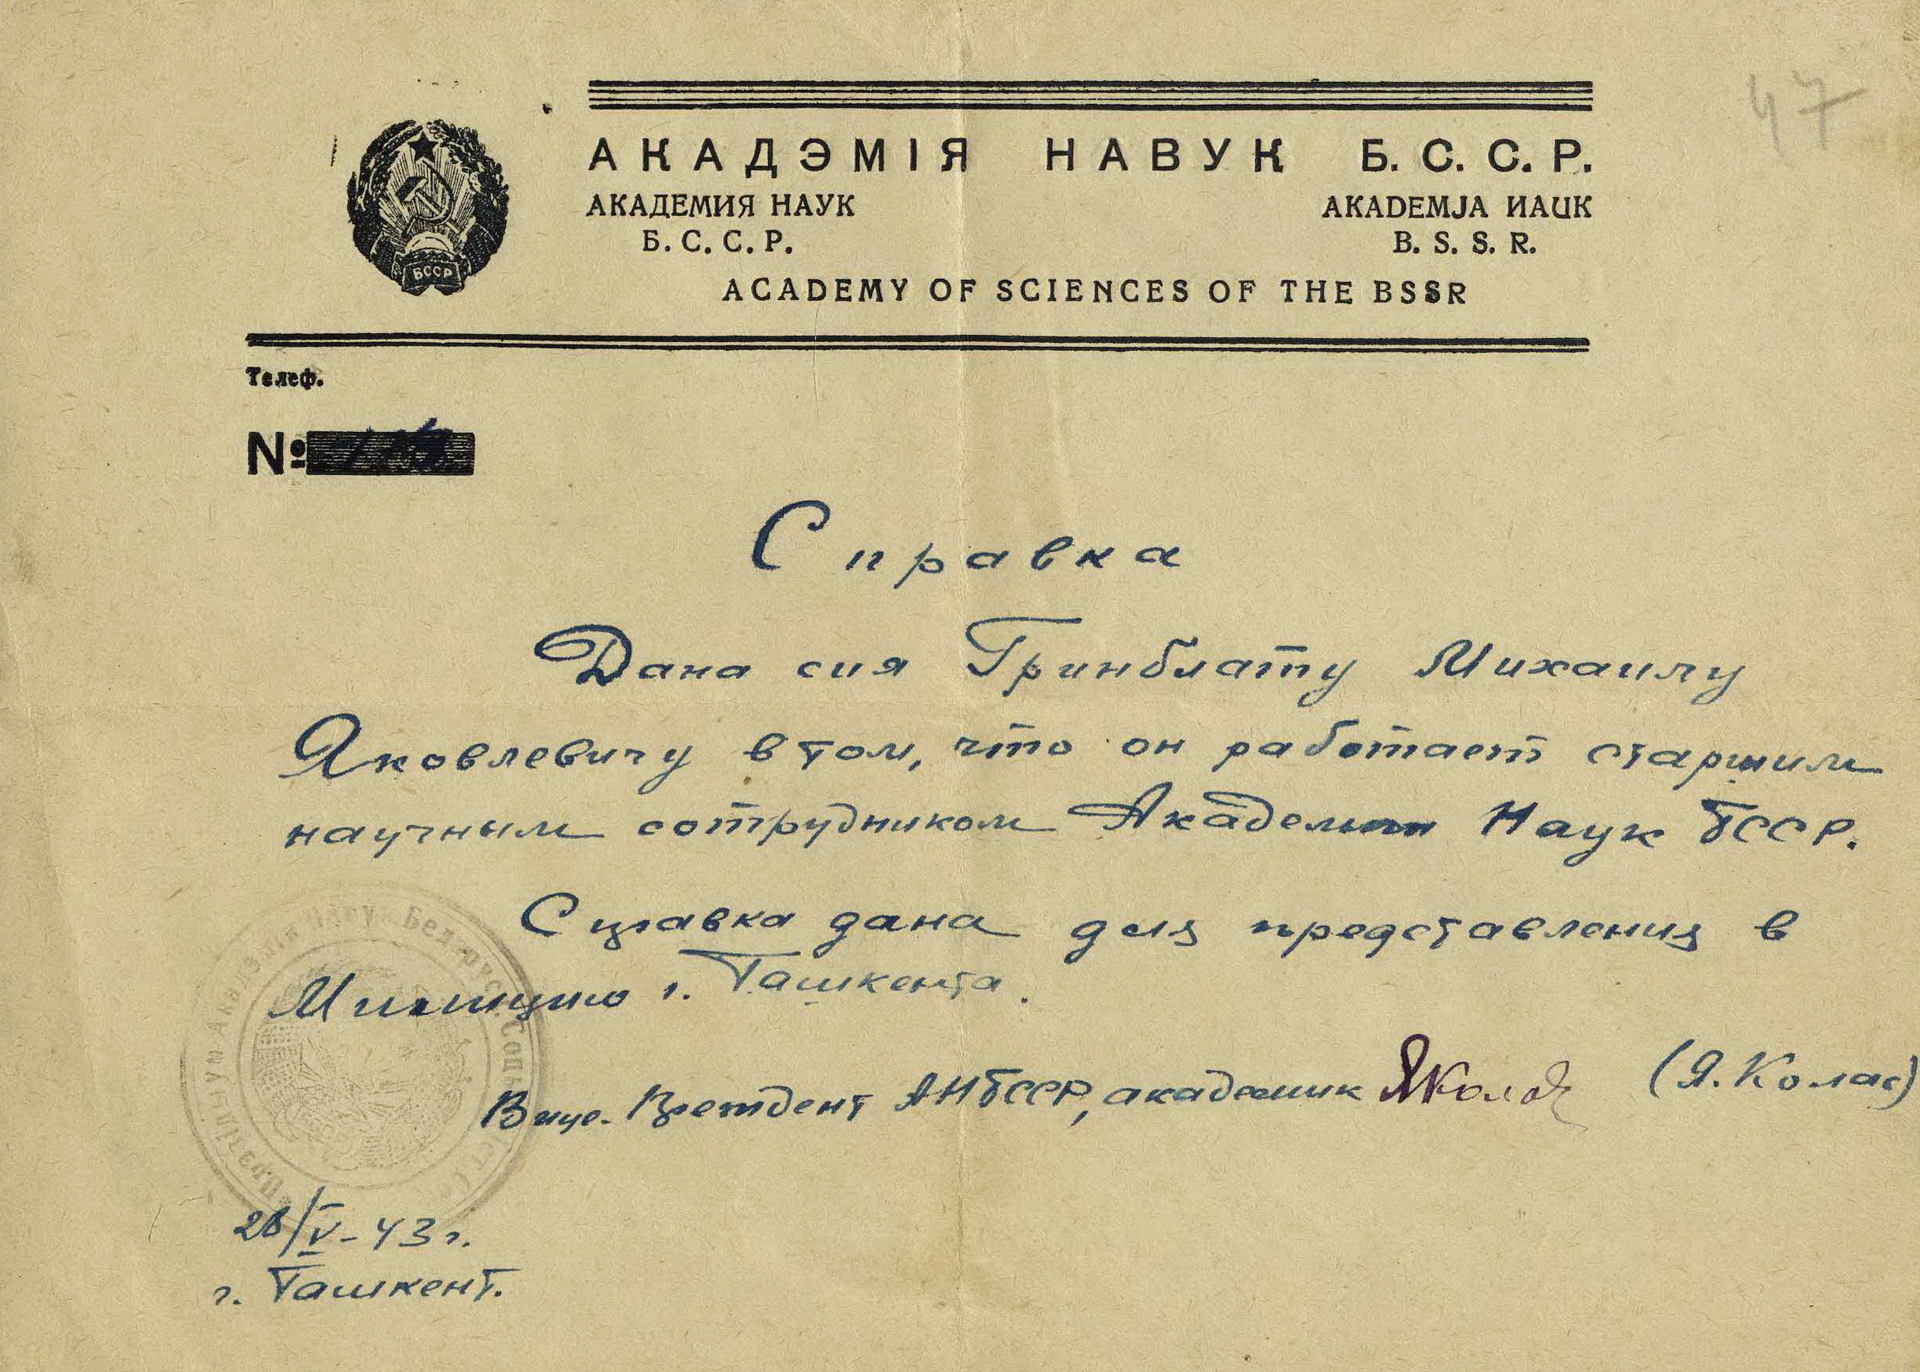 47
АКАДЭМІЯ НАВУК Б. С. С. Р.
АКАДЕМИЯ НАУК
Б. С. С. Р.
AKADEMJA ИAUK
B. S. S. R.
ACADEMY OF SCIENCES OF THE BSSR
БССР
Телеф.
№
Справка
Дана сия Гринблату Михаилу
Яковлевичу в том, что он работает старшим
научным сотрудником Академии Наук БССР.
Справка дана для представления в
Милицию г. Ташкента.
Вице-Президент АНБССР, академик ЯКолас (Я. Колас)
Прэзідыум Акадэміі Навук Беларус. Соц.
28/V-43 г.
г. Ташкент.